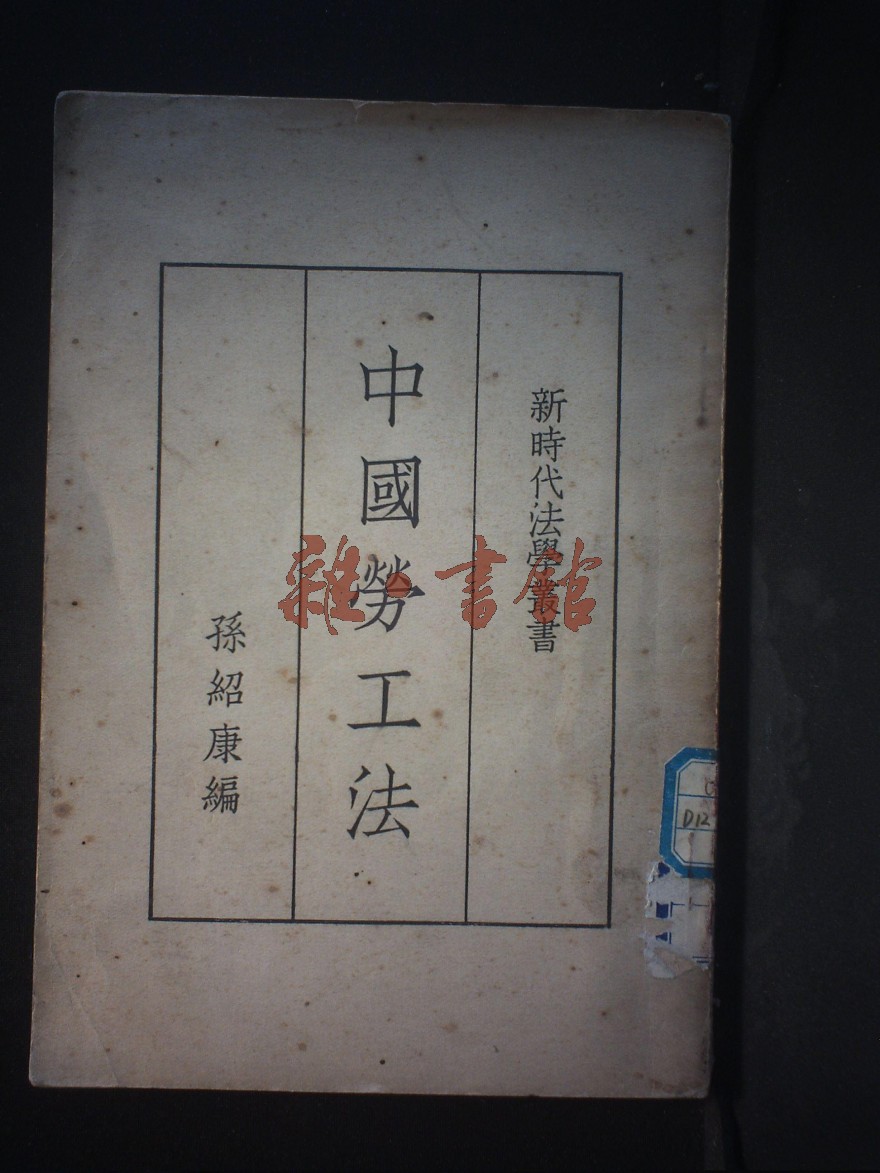 新時代法學叢書
中國勞工法
孫紹康編
雜·書館
D12